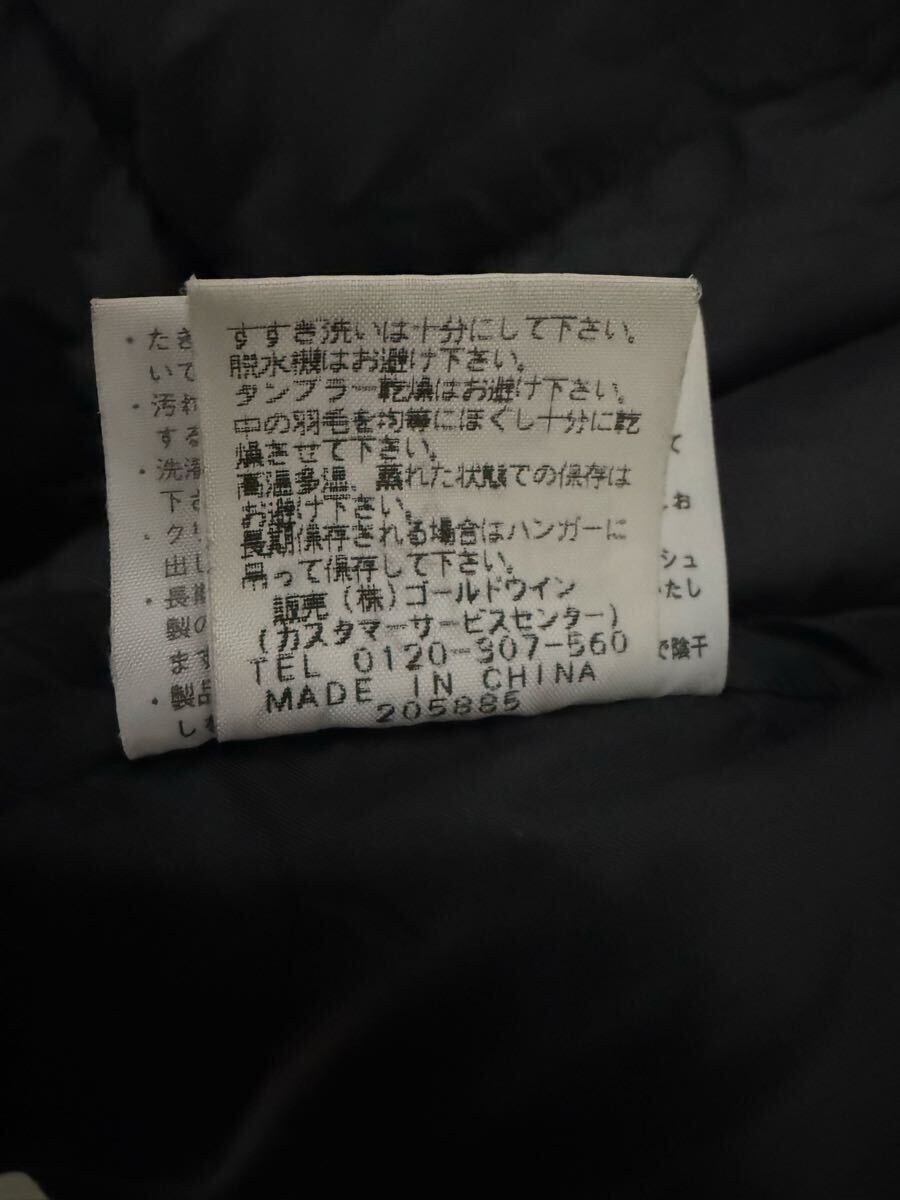 すすぎ洗いは十分にして下さい。
脱水機はお避け下さい。
タンブラー乾燥はお避け下さい。
中の羽毛を均等にほぐし十分に乾
燥させて下さい。
高温多湿、蒸れた状態での保存は
お避け下さい。
長期保存される場合はハンガーに
吊って保存して下さい。
販売(株)ゴールドウイン
(カスタマーサービスセンター)
TEL 0120-307-560
MADE IN CHINA
205885
・たき
いて
・汚れ
する
・洗濯
下さ
・クリ
出し
・長期
製の
ます
・製品
しわ
て
お
シュ
いたし
で陰干